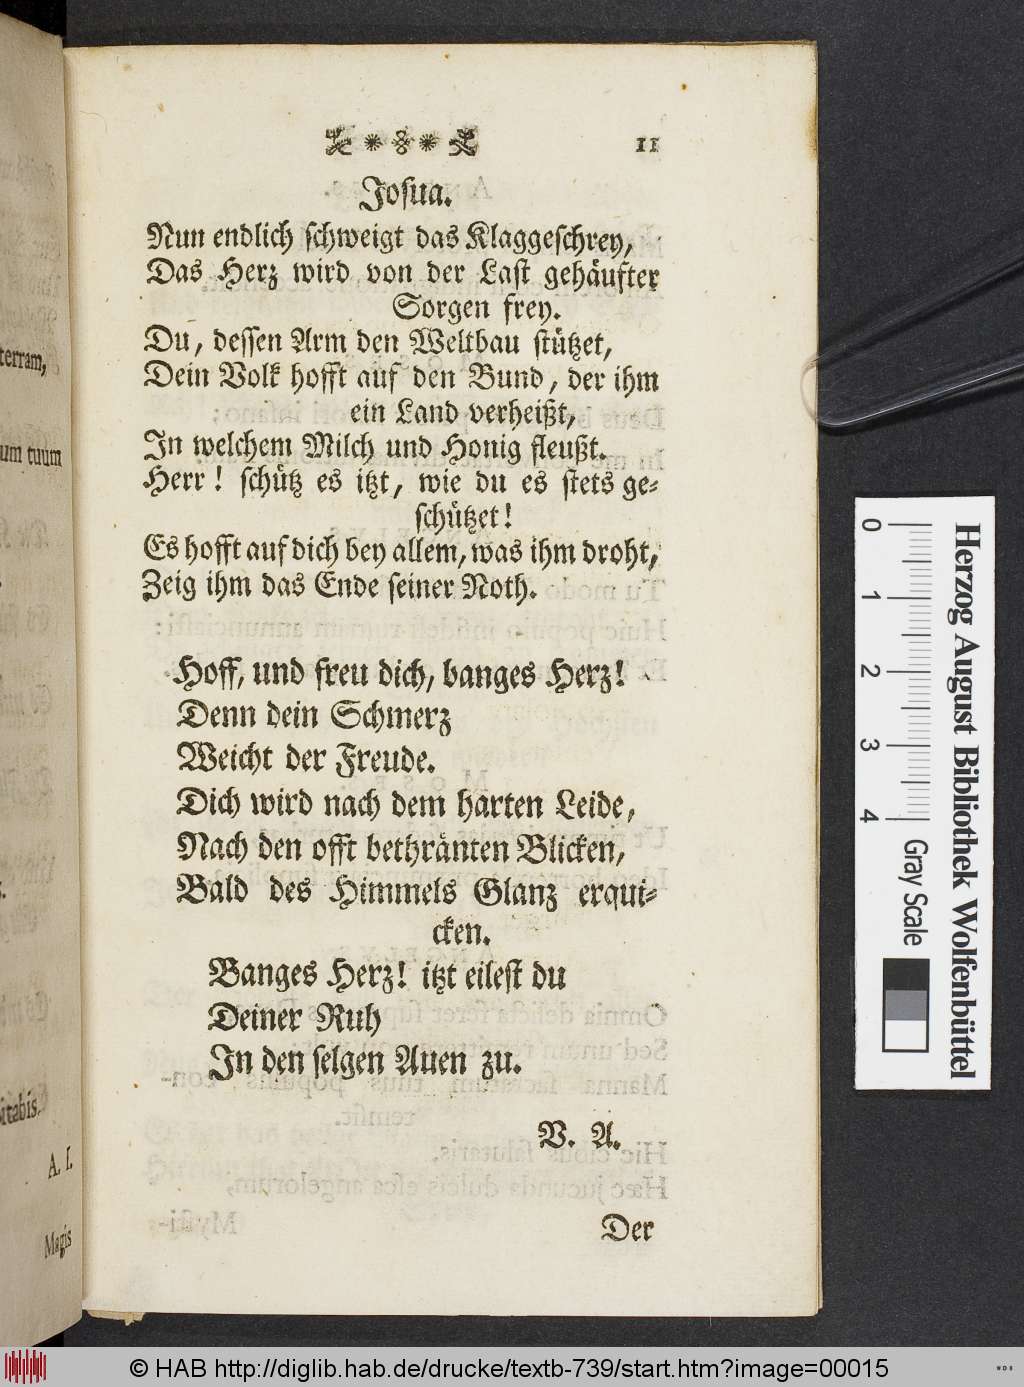 11
Joſua.
Nun endlich ſchweigt das Klaggeſchrey,
Das Herz wird von der Laſt gehäufter
Sorgen frey.
Du, deſſen Arm den Weltbau ſtützet,
Dein Volk hofft auf den Bund, der ihm
ein Land verheißt,
In welchem Milch und Honig fleußt.
Herr! ſchütz es itzt, wie du es ſtets ge-
ſchützet!
Es hofft auf dich bey allem, was ihm droht,
Zeig ihm das Ende ſeiner Noth.
Hoff, und freu dich, banges Herz!
Denn dein Schmerz
Weicht der Freude.
Dich wird nach dem harten Leide,
Nach den offt bethränten Blicken,
Bald des Himmels Glanz erqui-
cken.
Banges Herz! itzt eileſt du
Deiner Ruh
In den ſelgen Auen zu.
V. A.
Der
terram,
um tuum
itabis.
A. I.
Magis
Herzog August Bibliothek Wolfenbüttel
0 1 2 3 4 Gray Scale
© HAB http://diglib.hab.de/drucke/textb-739/start.htm?image=00015